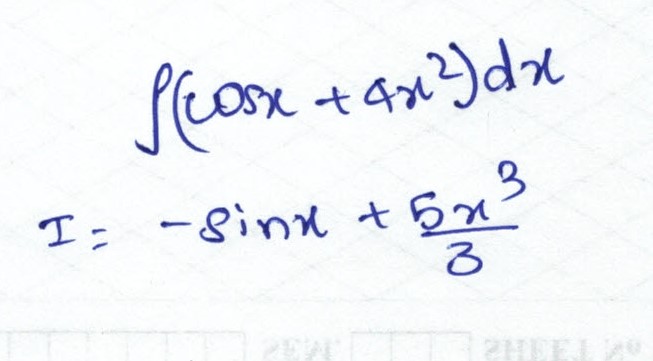 ∫(cosx + 4x²)dx
I = -sinx + 5x³/3
SEM.
SHEET No